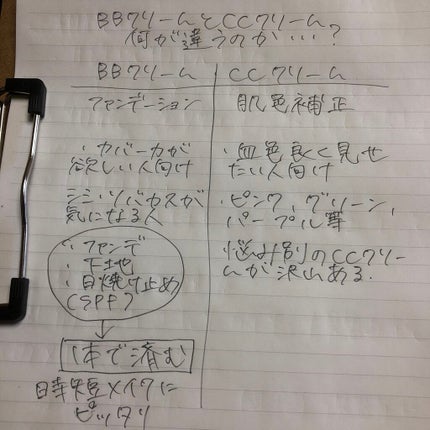 BBクリームとCCクリーム
何が違うのか…?
BBクリーム
ファンデーション
・カバー力が
欲しい人向け
シミ・ソバカスが
気になる人
・ファンデ
・下地
・日焼け止め
(SPF)
↓
1本で済む
時短メイクに
ピッタリ
CCクリーム
肌色補正
・血色良く見せ
たい人向け
・ピンク、グリーン、
パープル等
悩み別のCCクリー
ムが沢山ある.